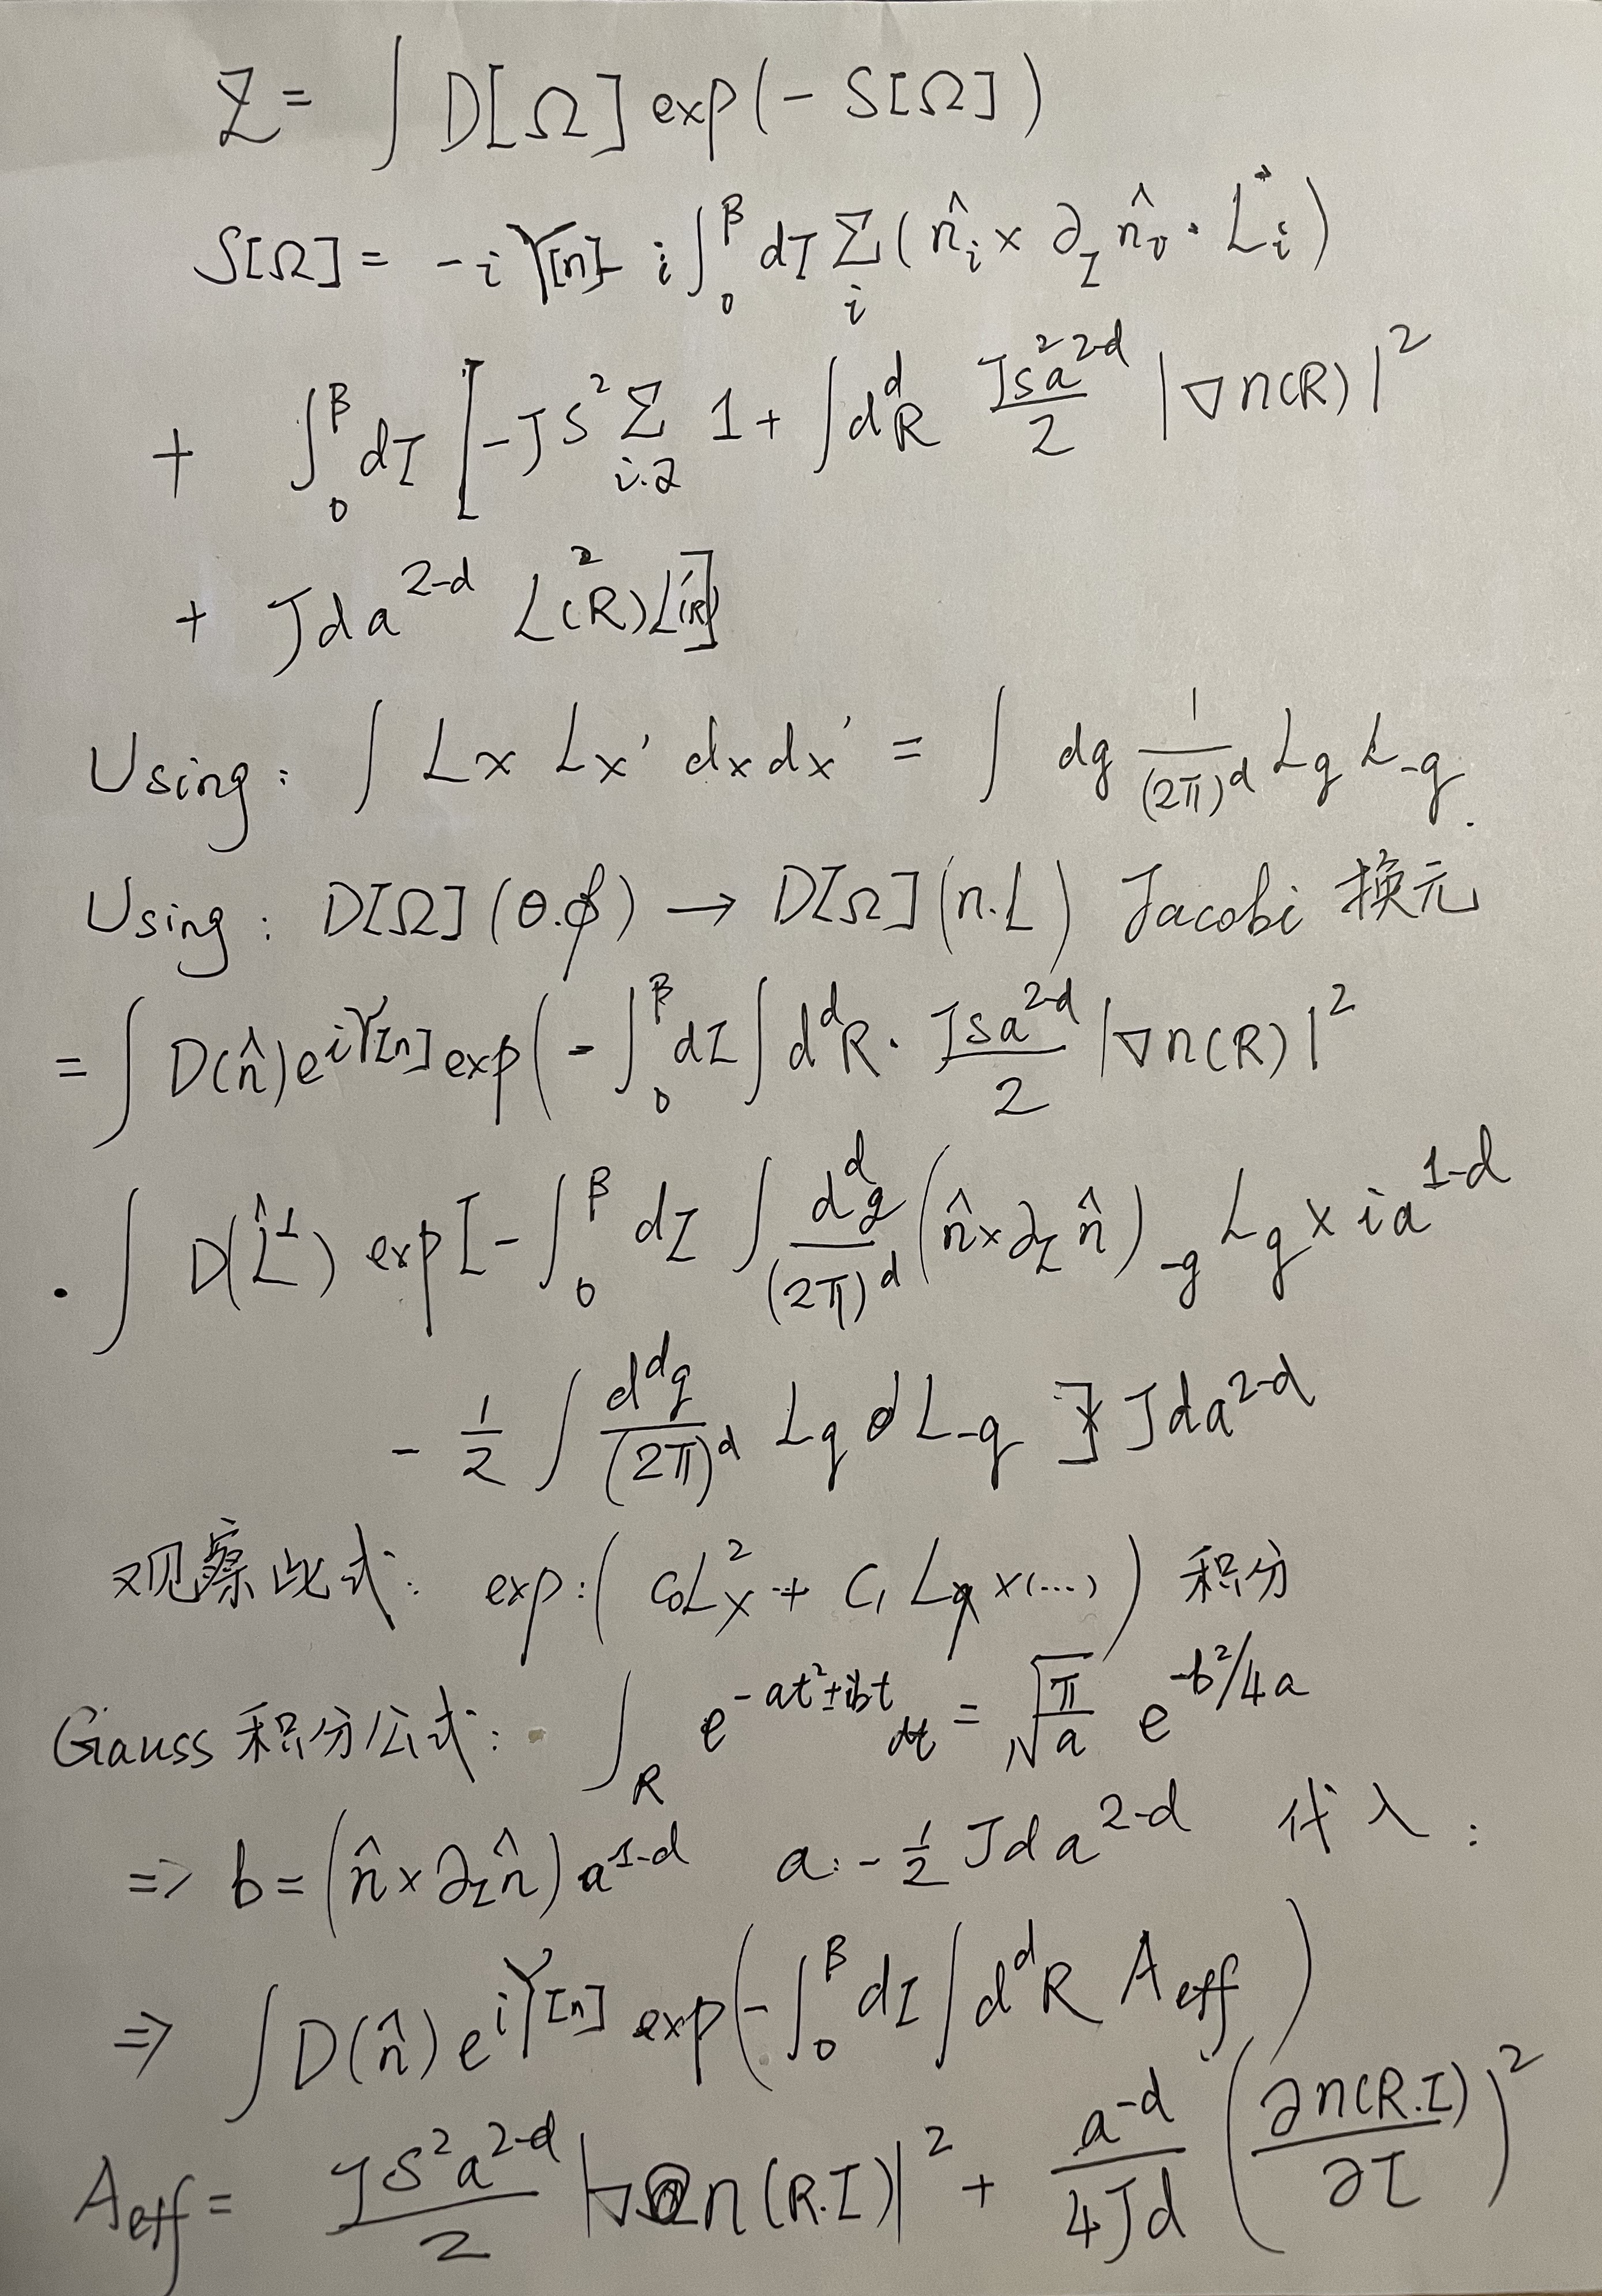 Z = ∫ D[Ω] exp(- S[Ω])
S[Ω] = -iϒ[n] - i∫₀^β dτ Σ_i (n̂_i × ∂_τ n̂_i · L⃗_i)
+ ∫₀^β dτ [-JS² Σ_{i.2} 1 + ∫d^dR (Js²a^{2-d}/2) |∇n(R)|²
+ Jda^{2-d} L²(R)L'(R)]
Using: ∫ Lx Lx' dx dx' = ∫ dq 1/(2π)^d L_q L_{-q}.
Using: D[Ω](θ.ϕ) → D[Ω](n.L) Jacobi 换元
= ∫ D(n̂)e^{iϒ[n]} exp(-∫₀^β dτ ∫d^dR · (Jsa^{2-d}/2) |∇n(R)|²
· ∫ D(L̂^1) exp[-∫₀^β dτ ∫ d^dq/(2π)^d (n̂×∂_τ n̂)_{-q} L_q × i a^{1-d}
- 1/2 ∫ d^dq/(2π)^d L_q d L_{-q}] Jda^{2-d}
观察此式: exp:(C₀L_x² + C₁ L_q ×(...)) 积分
Gauss 积分公式: ∫_R e^{-at²±ibt} dt = √(π/a) e^{-b²/4a}
=> b = (n̂×∂_τ n̂) a^{1-d} a: -1/2 Jda^{2-d} 代入:
=> ∫D(n̂)e^{iϒ[n]} exp(-∫₀^β dτ ∫d^dR A_eff)
A_eff = (JS²a^{2-d}/2) |∇n(R.τ)|² + (a^{-d}/4Jd) (∂n(R.τ)/∂τ)²